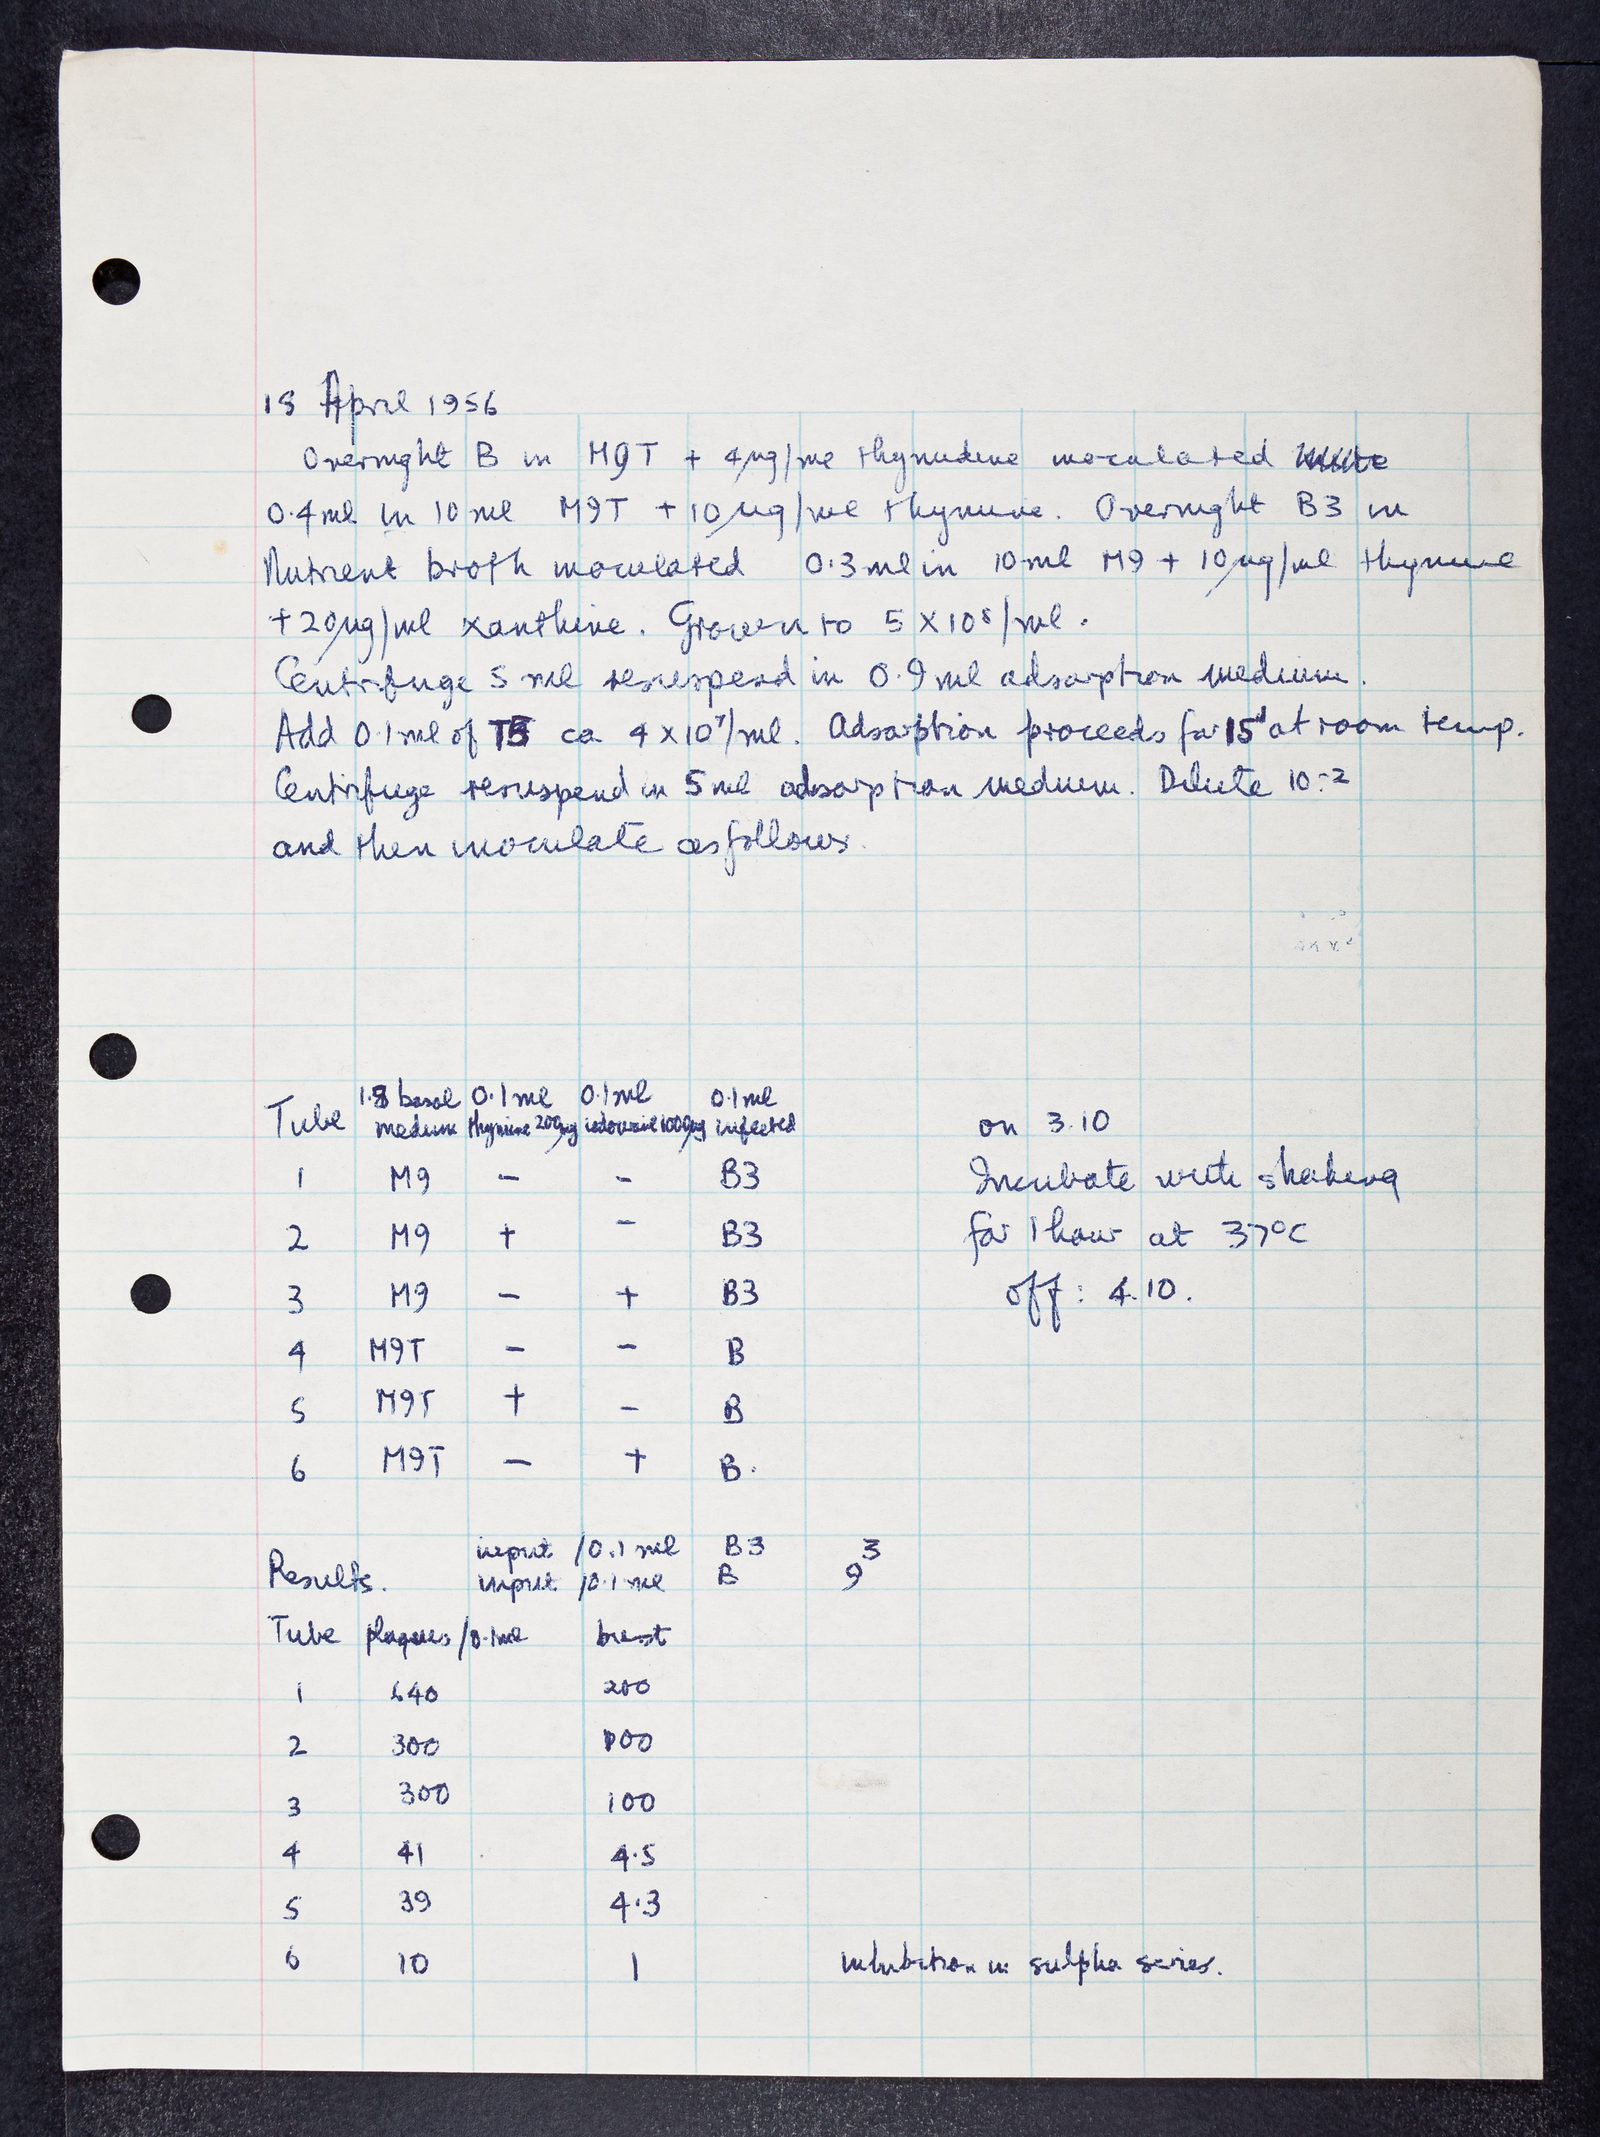 18 April 1956
Overnight B in M9T + 4µg/ml thymidine inoculated
0.4 ml in 10 ml M9T + 10 µg/ml thymine. Overnight B3 in
Nutrient broth inoculated 0.3 ml in 10 ml M9 + 10 µg/ml thymine
+ 20µg/ml xanthine. Grown to 5 X 10⁸/ml.
Centrifuge 5 ml resuspend in 0.9 ml adsorption medium.
Add 0.1 ml of T5 ca 4 x 10⁷/ml. Adsorption proceeds for 15' at room temp.
Centrifuge resuspend in 5 ml adsorption medium. Dilute 10⁻²
and then inoculate as follows.
Tube 1.8 basal medium 0.1 ml thymine 200µg 0.1 ml iodouracil 1000µg 0.1 ml infected
on 3.10
1 M9 − − B3 Incubate with shaking
2 M9 + − B3 for 1 hour at 37°C
3 M9 − + B3 off: 4.10.
4 M9T − − B
5 M9T + − B
6 M9T − + B.
input /0.1 ml B3 3
Results. input /0.1 ml B 9
Tube plaques /0.1 ml burst
1 640 200
2 300 100
3 300 100
4 41 4.5
5 39 4.3
6 10 1 inhibition in sulpha series.